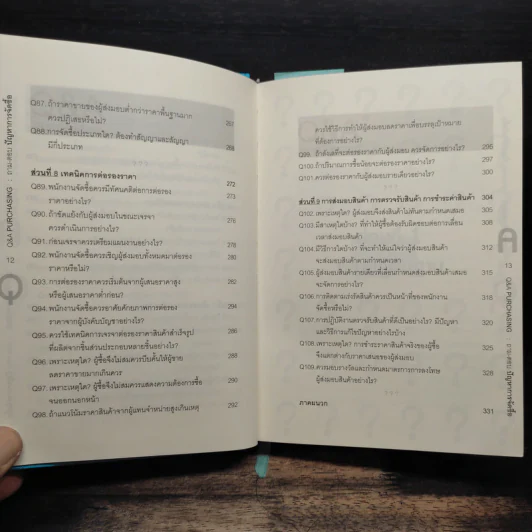 Q87. ถ้าราคาขายของผู้ส่งมอบต่ำกว่าราคาพื้นฐานมาก
ควรปฏิเสธหรือไม่?
Q88. การจัดซื้อประเภทใด? ต้องทำสัญญาและสัญญา
มีกี่ประเภท 268
ส่วนที่ 8 เทคนิคการต่อรองราคา 272
Q89. พนักงานจัดซื้อควรมีทัศนคติต่อการต่อรอง 274
ราคาอย่างไร?
Q90. ถ้าขัดแย้งกับผู้ส่งมอบในขณะเจรจา 278
ควรดำเนินการอย่างไร?
Q91. ก่อนเจรจาควรเตรียมแผนงานอย่างไร? 280
Q92. พนักงานจัดซื้อควรเชิญผู้ส่งมอบทั้งหมดมาต่อรอง 282
ราคาหรือไม่?
Q93. การต่อรองราคาควรเริ่มต้นจากผู้เสนอราคาสูง 284
หรือผู้เสนอราคาต่ำก่อน?
Q94. พนักงานจัดซื้อควรอาศัยศักยภาพการต่อรอง 286
ราคาจากผู้บังคับบัญชาอย่างไร?
Q95. ควรใช้เทคนิคการเจรจาต่อรองราคาสินค้าสำเร็จรูป 287
ที่ผลิตจากชิ้นส่วนประกอบหลายชิ้นอย่างไร?
Q96. เพราะเหตุใด? ผู้ซื้อจึงไม่สมควรบีบคั้นให้ผู้ขาย 288
ลดราคาขายมากเกินควร
Q97. เพราะเหตุใด? ผู้ซื้อไม่สมควรแสดงความต้องการซื้อ 290
จนออกนอกหน้า
Q98. ถ้าแนวโน้มราคาสินค้าจากผู้แทนจำหน่ายสูงเกินเหตุ 292
12 Q&A PURCHASING : ถาม-ตอบ ปัญหาการจัดซื้อ
Q
ควรใช้วิธีการทำให้ผู้ส่งมอบลดราคาเพื่อบรรลุเป้าหมาย
ที่ต้องการอย่างไร?
Q99. ถ้าสั่งเลทจะต่อรองราคากับผู้ส่งมอบ ควรจัดการอย่างไร? 295
Q100. ถ้าปริมาณการซื้อน้อยจะต่อรองราคาอย่างไร? 296
Q101. ควรต่อรองราคากับผู้ส่งมอบรายเดียวอย่างไร? 300
ส่วนที่ 9 การส่งมอบสินค้า การตรวจรับสินค้า การชำระค่าสินค้า 304
Q102. เพราะเหตุใด? ผู้ส่งมอบจึงส่งสินค้าไม่ทันตามกำหนดเสมอ 306
Q103. มีสาเหตุใดบ้าง? ที่ทำให้ผู้ซื้อต้องรับผิดชอบต่อการเลื่อน 308
เวลาส่งมอบสินค้า
Q104. มีวิธีการใดบ้าง? ที่จะทำให้แน่ใจว่าผู้ส่งมอบสินค้า 312
จะส่งมอบสินค้าตามกำหนดเวลา
Q105. ผู้ส่งมอบสินค้ารายเดียวที่เลื่อนกำหนดส่งมอบสินค้าเสมอ 315
จะจัดการอย่างไร?
Q106. การติดตามเร่งรัดสินค้าควรเป็นหน้าที่ของพนักงาน 318
จัดซื้อหรือไม่?
Q107. การปฏิบัติงานตรวจรับสินค้าที่ดีเป็นอย่างไร? มีปัญหา 320
และวิธีการแก้ไขปัญหาอย่างไรบ้าง 325
Q108. เพราะเหตุใด? การชำระราคาสินค้าจริงของผู้ซื้อ
จึงแตกต่างกับราคาเสนอของผู้ส่งมอบ 328
Q109. ควรมอบรางวัลและกำหนดมาตรการการลงโทษ 329
ผู้ส่งมอบสินค้าอย่างไร?
ภาคผนวก 331
A
13 Q&A PURCHASING : ถาม-ตอบ ปัญหาการจัดซื้อ